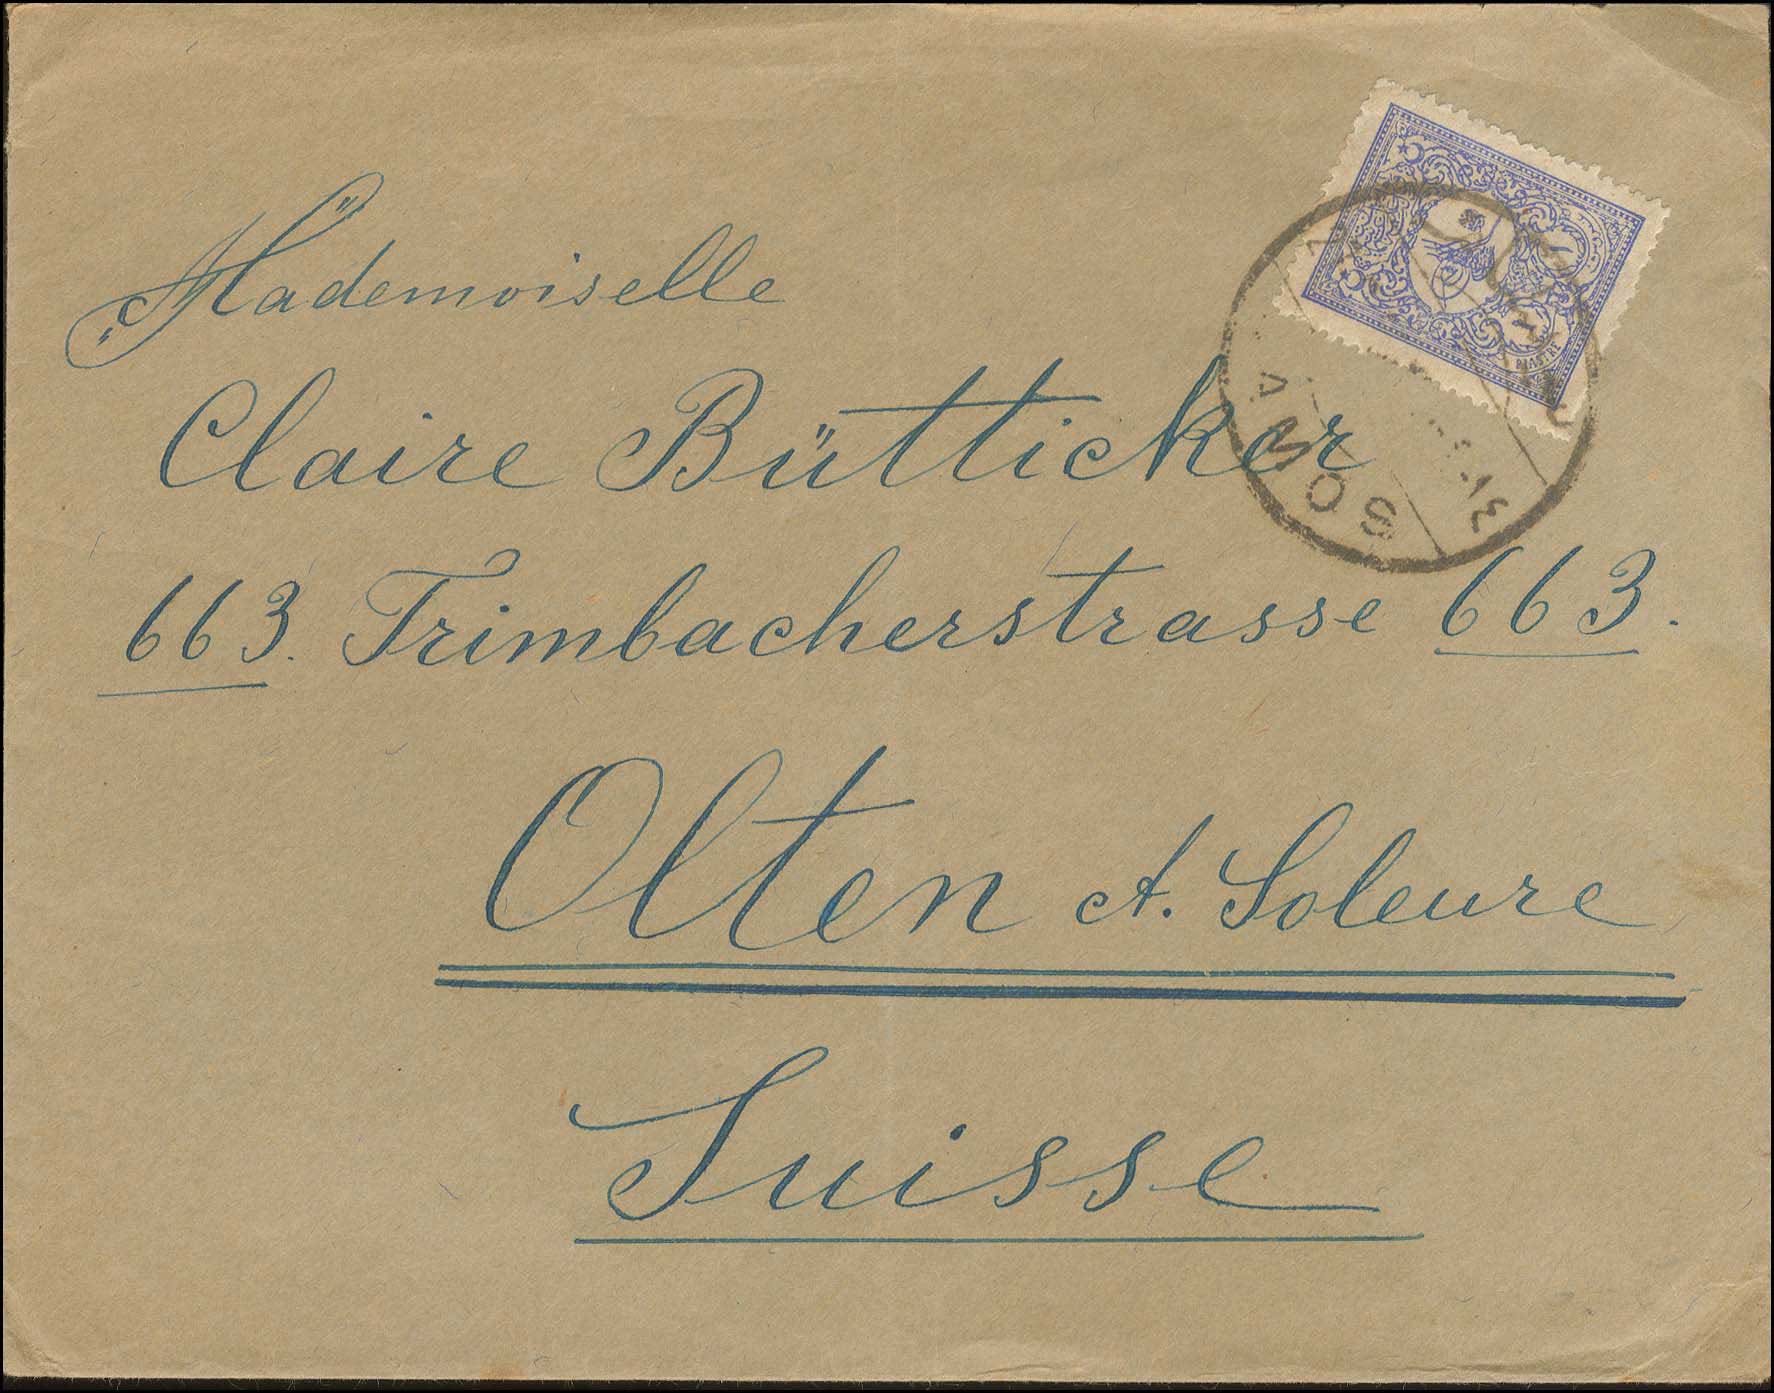 Mademoiselle
Claire Bütticker
663. Trimbacherstrasse 663.
Olten ct. Soleure
Suisse
PIASTRE
SOMA